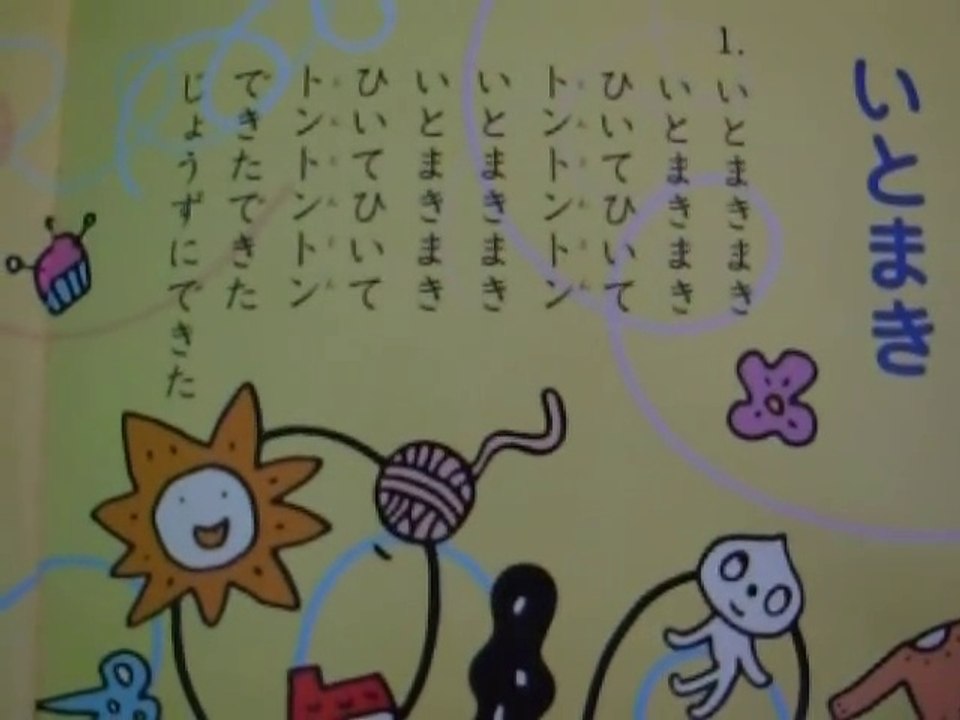 いとまき
1.
いとまきまき
いとまきまき
ひいてひいて
トントントン
いとまきまき
いとまきまき
ひいてひいて
トントントン
できたできた
じょうずにできた